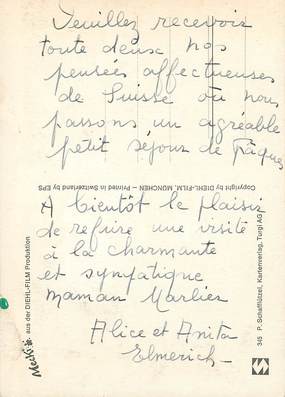 Veuillez recevoir
toute deux nos
pensées affectueuses
de Suisse où nous
passons un agréable
petit séjour de Pâques
Copyright by DIEHL-FILM, MÜNCHEN – Printed in Switzerland by EPS
A bientôt le plaisir
de refaire une visite
à la charmante
et sympatique
maman Marlier
Alice et Anita
Elmerich
Mecki aus der DIEHL-FILM Produktion
345 P. Schaffützel, Kartenverlag, Turgi AG